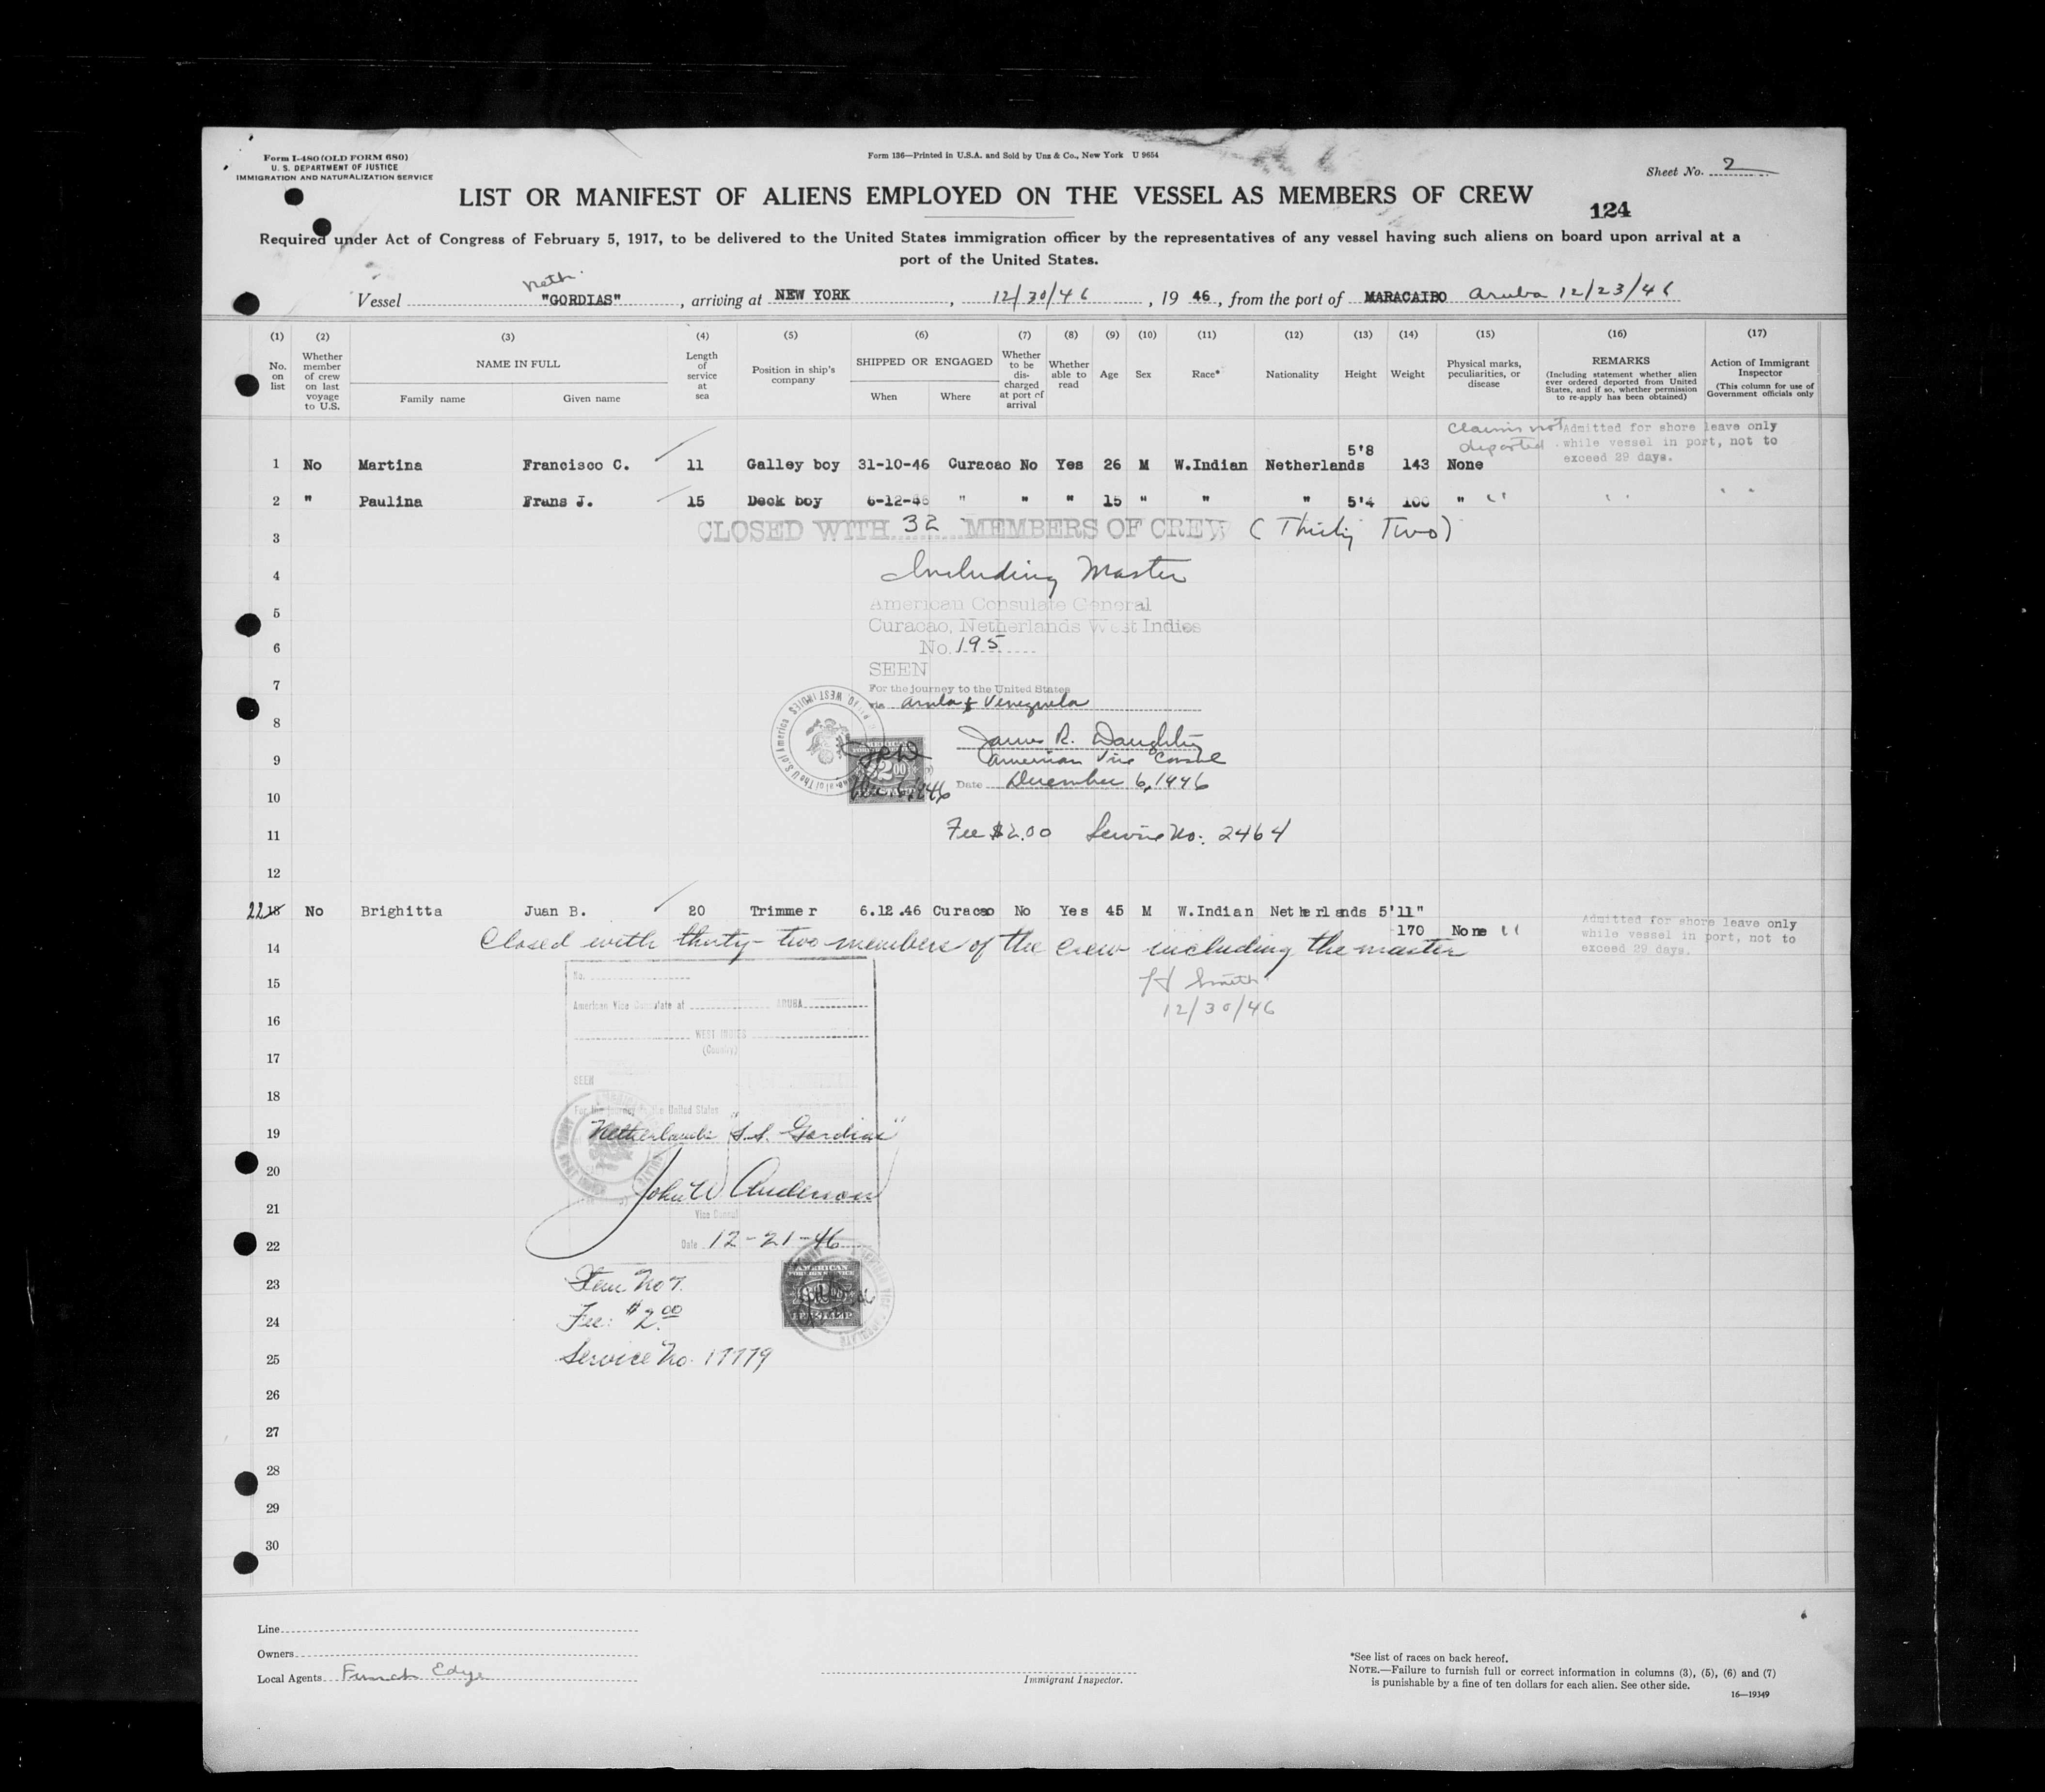 Form I-480 (OLD FORM 680)
U. S. DEPARTMENT OF JUSTICE
IMMIGRATION AND NATURALIZATION SERVICE
Form 136—Printed in U.S.A. and Sold by Unz & Co., New York U 9654
Sheet No. 2
LIST OR MANIFEST OF ALIENS EMPLOYED ON THE VESSEL AS MEMBERS OF CREW
124
Required under Act of Congress of February 5, 1917, to be delivered to the United States immigration officer by the representatives of any vessel having such aliens on board upon arrival at a
port of the United States.
Neth.
Vessel "GORDIAS", arriving at NEW YORK, 12/30/46, 19 46, from the port of MARACAIBO Aruba 12/23/46
(1) (2) (3) (4) (5) (6) (7) (8) (9) (10) (11) (12) (13) (14) (15) (16) (17)
No. on list
Whether member of crew on last voyage to U.S.
NAME IN FULL
Family name Given name
Length of service at sea
Position in ship's company
SHIPPED OR ENGAGED
When Where
Whether to be discharged at port of arrival
Whether able to read
Age
Sex
Race*
Nationality
Height
Weight
Physical marks, peculiarities, or disease
REMARKS
(Including statement whether alien ever ordered deported from United States, and if so, whether permission to re-apply has been obtained)
Action of Immigrant Inspector
(This column for use of Government officials only
Claims not deported
Admitted for shore leave only
while vessel in port, not to
exceed 29 days.
1 No Martina Francisco C. 11 Galley boy 31-10-46 Curacao No Yes 26 M W.Indian Netherlands 5'8 143 None
2 " Paulina Frans J. 15 Deck boy 6-12-46 " " " 15 " " " 5'4 100 " " " "
3
CLOSED WITH 32 MEMBERS OF CREW (Thirty Two)
4
Including Master
5
American Consulate General
Curacao, Netherlands West Indies
6
No. 195
SEEN
7
For the journey to the United States
via Aruba & Venezuela
8
James R. Daughtry
9
American Vice Consul
Date December 6, 1946
AMERICAN
2.00
10
11
Fee $2.00 Service No. 2464
12
22 13 No Brighitta Juan B. 20 Trimmer 6.12.46 Curacao No Yes 45 M W.Indian Netherlands 5'11"
170 None "
Admitted for shore leave only
while vessel in port, not to
exceed 29 days.
14
Closed with thirty-two members of the crew including the master
15
H Smith
12/30/46
No.
American Vice Consulate at ARUBA
16
WEST INDIES
(Country)
17
SEEN
18
For the journey to the United States
19
Netherlands "S.S. Gordias"
20
John W Anderson
21
Vice Consul
22
Date 12-21-46
23
Item No 7.
AMERICAN
24
Fee: $2.00
25
Service No. 17779
26
27
28
29
30
Line
Owners
Local Agents Funch Edye
Immigrant Inspector.
*See list of races on back hereof.
NOTE.—Failure to furnish full or correct information in columns (3), (5), (6) and (7)
is punishable by a fine of ten dollars for each alien. See other side.
16—19349